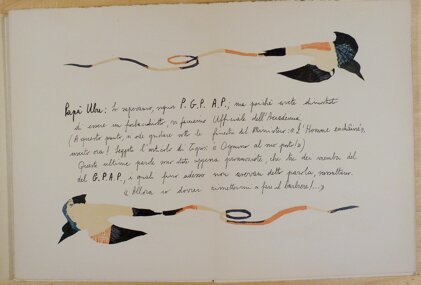 Papà Ubu: Lo sapevamo, signor P.G.P.A.P., ma perché avete dimostrato
di essere un farabutto, vi facciamo Ufficiale dell'Accademia
(A questo punto, si ode gridare sotto le finestre del Ministero: « L'Homme enchaîné»,
! Leggete l'articolo di : « Ognuno al suo posto!»)
Queste ultime parole sono state appena pronunciate, che tre dei membri del
del G.P.A.P., i quali fino adesso non avevano detto parola,
« Allora io dovrei rimettermi a fare il barbiere!...»